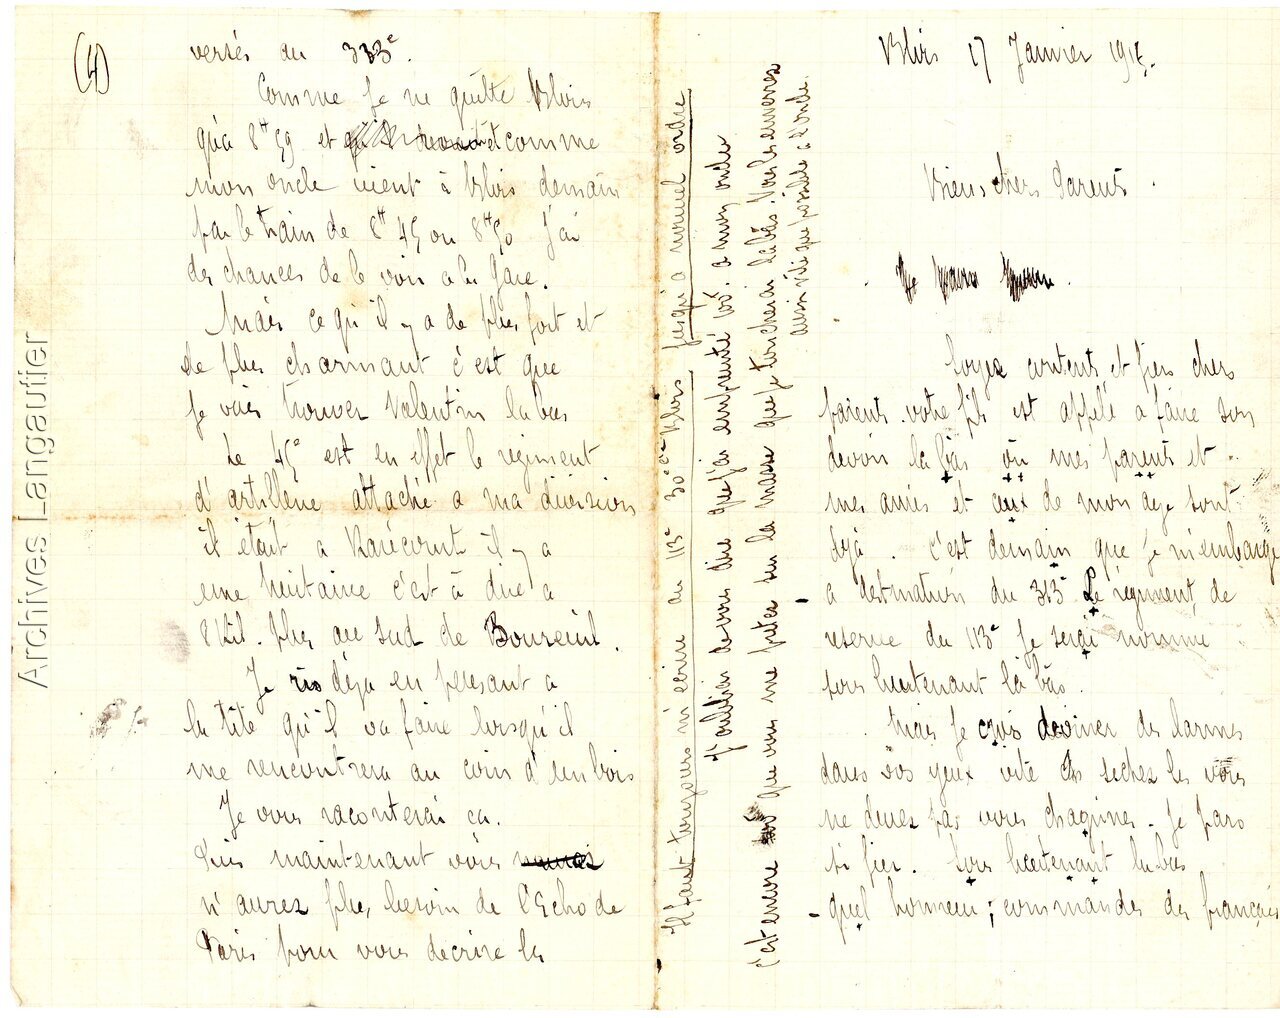 Blois 17 Janvier 1915.
Biens chers Parents.
Soyez contents et fiers chers
parents. votre fils est appelé a faire son
devoir la bas où mes parents et
mes amis et ceux de mon age sont
déjà. C'est demain que je m'embarque
a destination du 313e Le régiment de
reserve du 113e Je serai nommé
sous lieutenant là bas.
Mais je crois deviner des larmes
dans vos yeux vite sechez les vous
ne devez pas vous chagriner. Je pars
si fier. Sous lieutenant la bas
quel honneur; commander des français
(4)
versés au 313e.
Comme je ne quitte Blois
qu'a 8H 59 et comme
mon oncle vient à Blois demain
par le train de 8H 45 ou 8H 50 j'ai
des chances de le voir a la Gare.
Mais ce qu'il y a de plus fort et
de plus charmant c'est que
je vais trouver Valentin la bas
Le 45e est en effet le régiment
d'artillerie attaché a ma division
il était a Rarécourt il y a
une huitaine c'est à dire a
8 Kil. plus au sud de Boureuil.
Je ris déja en pensant a
la tête qu'il va faire lorsqu'il
me rencontrera au coin d'un bois
Je vous raconterai ca.
Puis maintenant vous
n'aurez plus besoin de l'Echo de
Paris pour vous décrire les
Il faut toujours m'ecrire au 113e 30e Cie Blois jusqu'a nouvel ordre
J'oubliais de vous dire que j'ai emprunté a mon oncle
c'est encore que vous me faites sur la masse que je toucherai la bas. Vous les enverrez
aussi vite que possible a l'oncle.
Archives Langautier